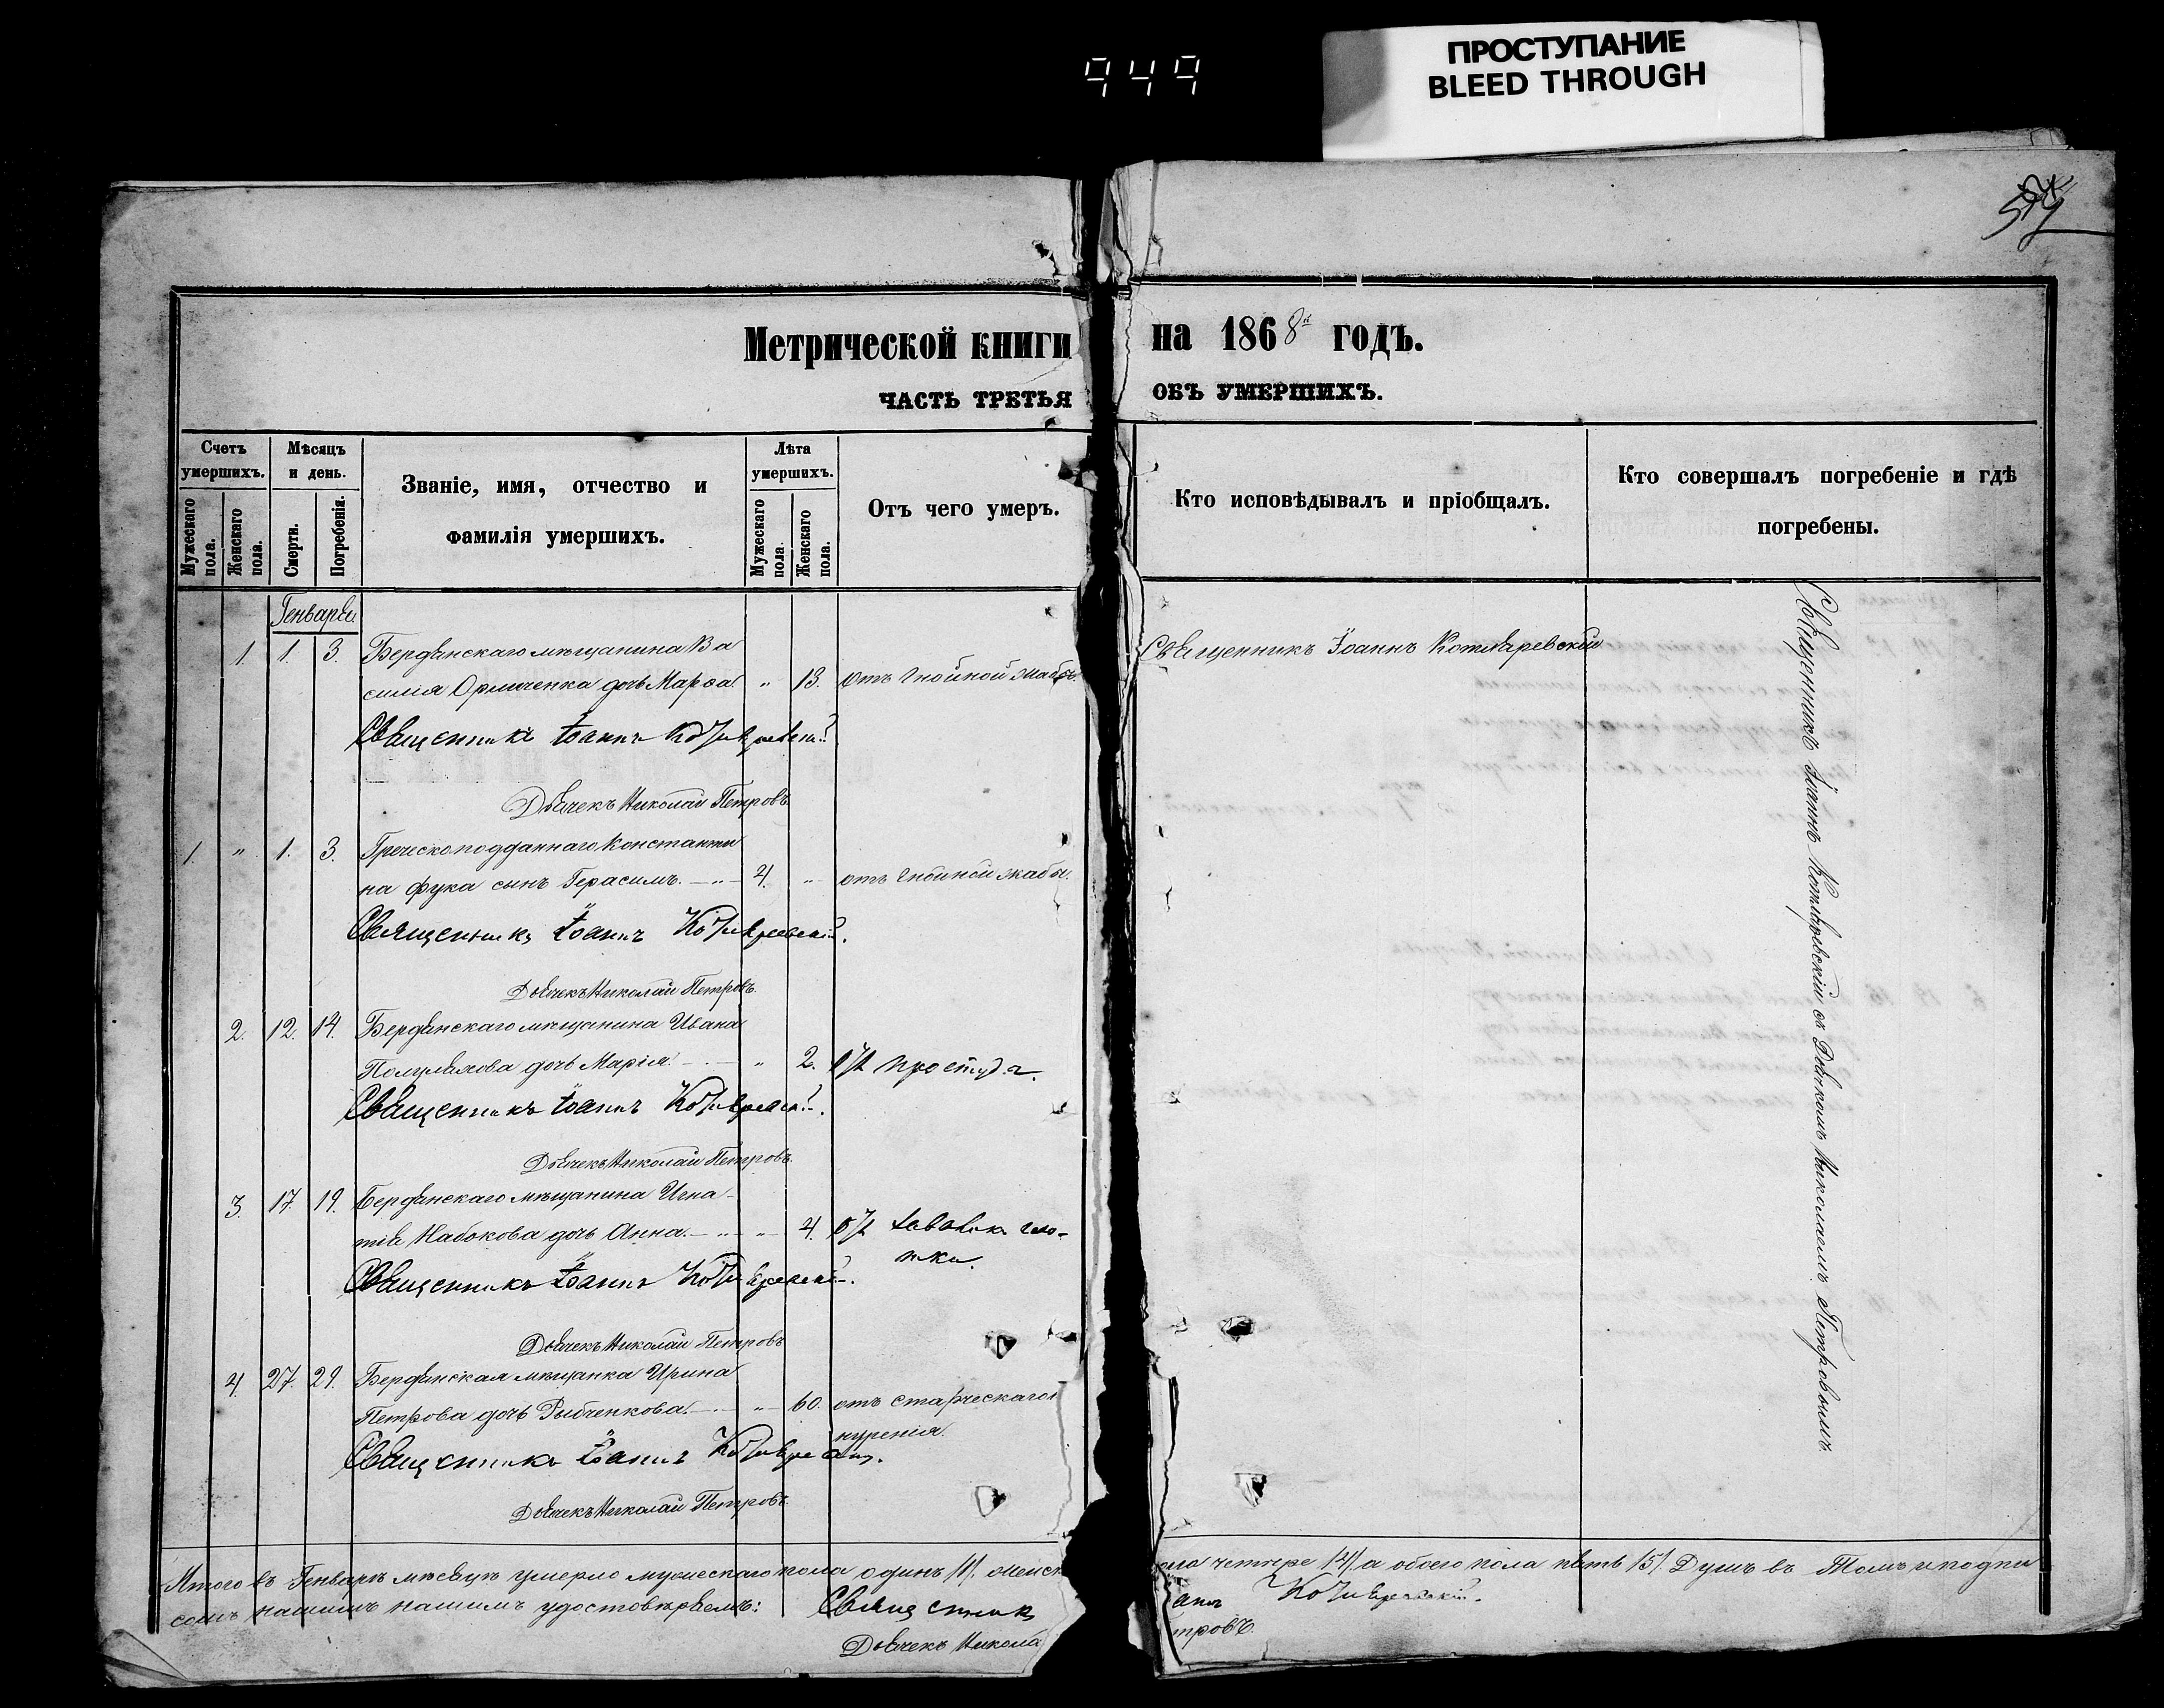 949
ПРОСТУПАНИЕ
BLEED THROUGH
Метрической книги на 1868й годъ.
ЧАСТЬ ТРЕТЬЯ ОБЪ УМЕРШИХЪ.
Счетъ умершихъ.
Мужескаго пола.
Женскаго пола.
Мѣсяцъ и день.
Смерти.
Погребенія.
Званіе, имя, отчество и
фамилія умершихъ.
Лѣта умершихъ.
Мужескаго пола.
Женскаго пола.
Отъ чего умеръ.
Кто исповѣдывалъ и пріобщалъ.
Кто совершалъ погребеніе и гдѣ
погребены.
Генваря
1. 1. 3. Бердянскаго мѣщанина Ва
силія дочь Марѳа. " 13. отъ гнойной жабы.
Священникъ Іоаннъ Котляревскій
Священникъ Іоаннъ Котляревскій
Дьячекъ Николай Петровъ.
1. " 1. 3. Греческоподданнаго Константи
на Фука сынъ Герасимъ. 4. " отъ гнойной жабы.
Священникъ Іоаннъ Котляревскій.
Дьячекъ Николай Петровъ.
2. 12. 14. Бердянскаго мѣщанина Ивана
дочь Марія. " 2. отъ простуда.
Священникъ Іоаннъ Котляревскій.
Дьячекъ Николай Петровъ.
3. 17. 19. Бердянскаго мѣщанина Игна
тія Набокова дочь Анна. " 4. отъ
Священникъ Іоаннъ Котляревскій.
Дьячекъ Николай Петровъ
4. 27. 29. Бердянская мѣщанка Ирина
Петрова дочь Рыбченкова. " 60. отъ старческаго
Священникъ Іоаннъ Котляревскій.
Дьячекъ Николай Петровъ.
Священникъ Іоаннъ Котляревскій съ Дьячкомъ Николаемъ Петровымъ.
Итого въ Генварѣ мѣсяцѣ умерло мужескаго пола одинъ /1/. женск ола четыре /4/. а обоего пола пять /5/. Душъ въ Томъ и подпи
сомъ нашимъ нашимъ удостовѣряемъ: Священникъ аннъ Котляревскій.
Дьячекъ Никола тровъ.